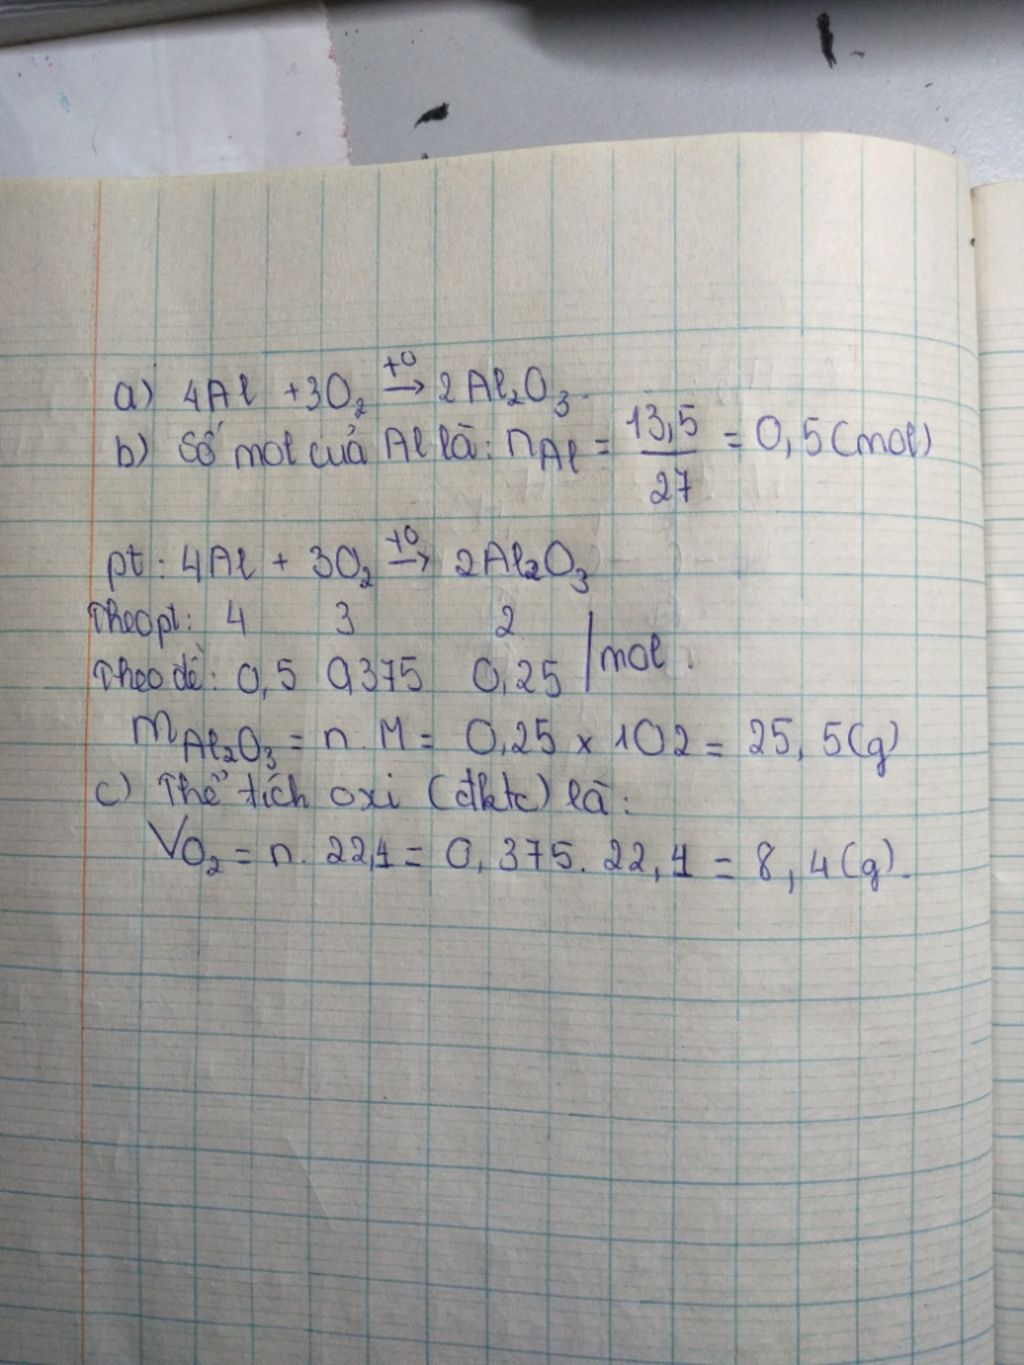 a) 4Al + 3O₂ →(t⁰) 2Al₂O₃.
b) Số mol của Al là: nAl = 13,5/27 = 0,5 (mol)
pt: 4Al + 3O₂ →(t⁰) 2Al₂O₃
Theo pt: 4 3 2
Theo đề: 0,5 0,375 0,25 / mol.
mAl₂O₃ = n. M = 0,25 x 102 = 25,5 (g)
c) Thể tích oxi (đktc) là:
VO₂ = n. 22,4 = 0,375. 22,4 = 8,4 (g).